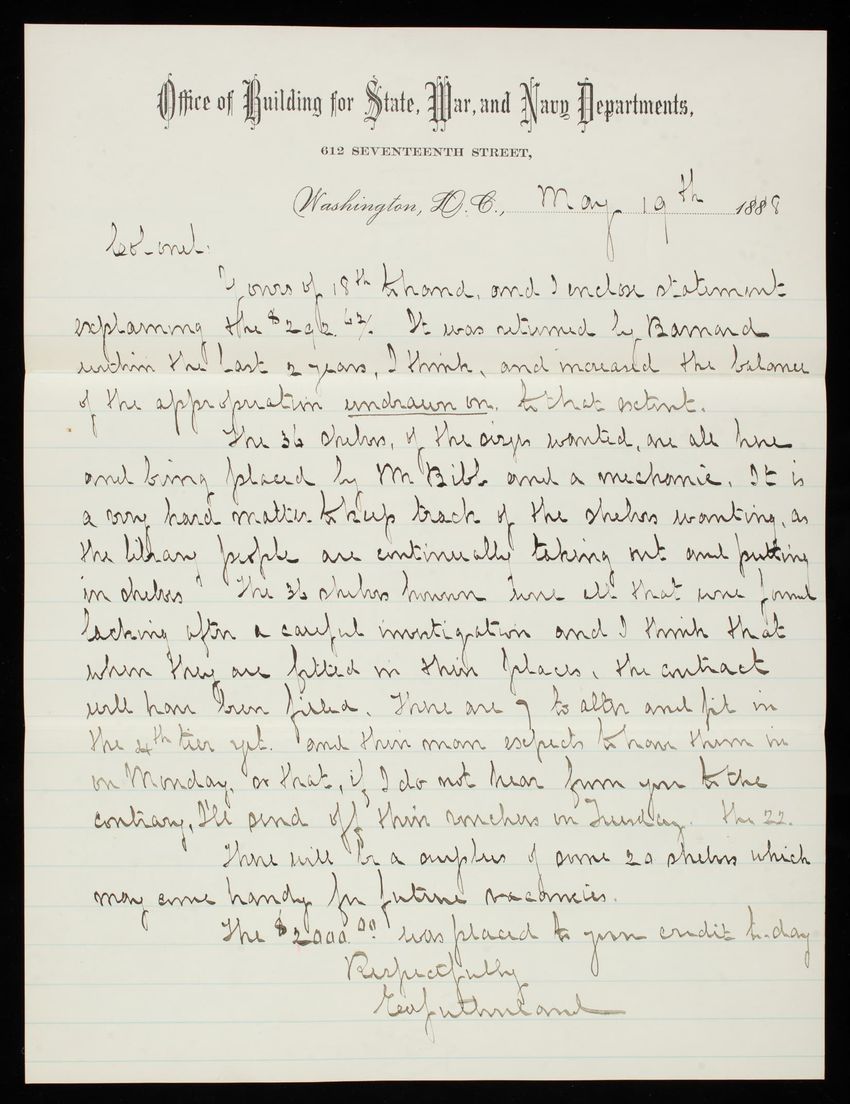 Office of Building for State, War, and Navy Departments,
612 SEVENTEENTH STREET,
Washington, D.C., May 19th 1888
Colonel.
Yours of 18th to hand, and I enclose statement
explaining the $292. It was returned by Barnard
within the last 2 years, I think, and increased the balance
of the appropriation undrawn on, to that extent.
The 36 shelves, of the sizes wanted, are all here
and being placed by Mr Bibb and a mechanic. It is
a very hard matter to keep track of the shelves wanting, as
the library people are continually taking out and putting
in shelves The 36 shelves however were all that were found
lacking after a careful investigation and I think that
when they are fitted in their places, the contract
will have been filled. There are 7 to alter and fit in
the 4th tier yet. and their man expects to have them in
on Monday, or that, if I do not hear from you to the
contrary, I'll send off their vouchers on Tuesday. the 22.
There will be a surplus of some 20 shelves which
may come handy for future vacancies.
The $2000.00 was placed to your credit to-day
Respectfully